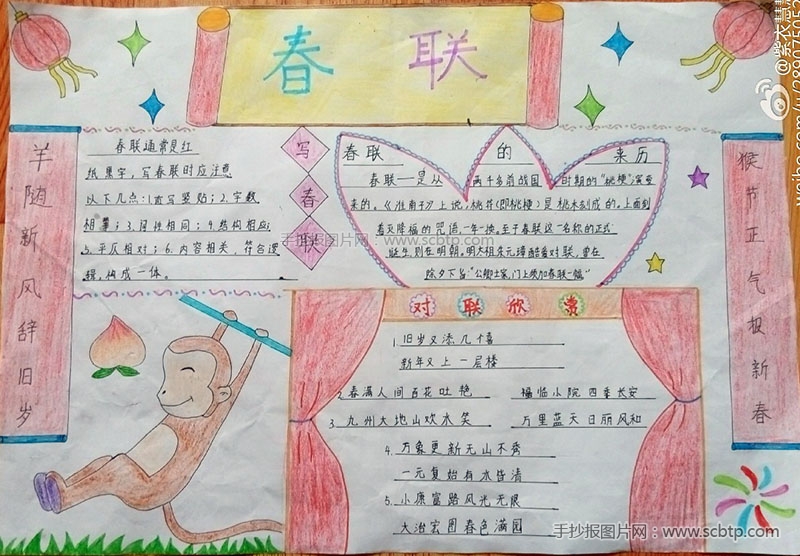 春联
羊随新风辞旧岁
猴节正气报新春
春联通常是红
纸黑字，写春联时应注意
以下几点：1.直写竖贴；2.字数
相等；3.词性相同；4.结构相应；
5.平仄相对；6.内容相关，符合逻
辑，构成一体。
写春联
春联的来历
春联一是从两千多前战国时期的“桃梗”演变
来的。《淮南子》上说，桃符（即桃梗）是桃木刻成的。上面刻
着灭降福的咒语，一年一换。至于春联这一名称的正式
诞生则在明朝。明太祖朱元璋酷爱对联，曾在
除夕下旨“公卿士家，门上须加春联一幅”
对联欣赏
1.旧岁又添几个喜
新年又上一层楼
2.春满人间百花吐艳 福临小院四季长安
3.九州大地山欢水笑 万里蓝天日丽风和
4.万象更新无山不秀
一元复始有水皆清
5.小康富路风光无限
大治宏图春色满园
手抄报图片网：www.scbtp.com
手抄报图片网：www.scbtp.com